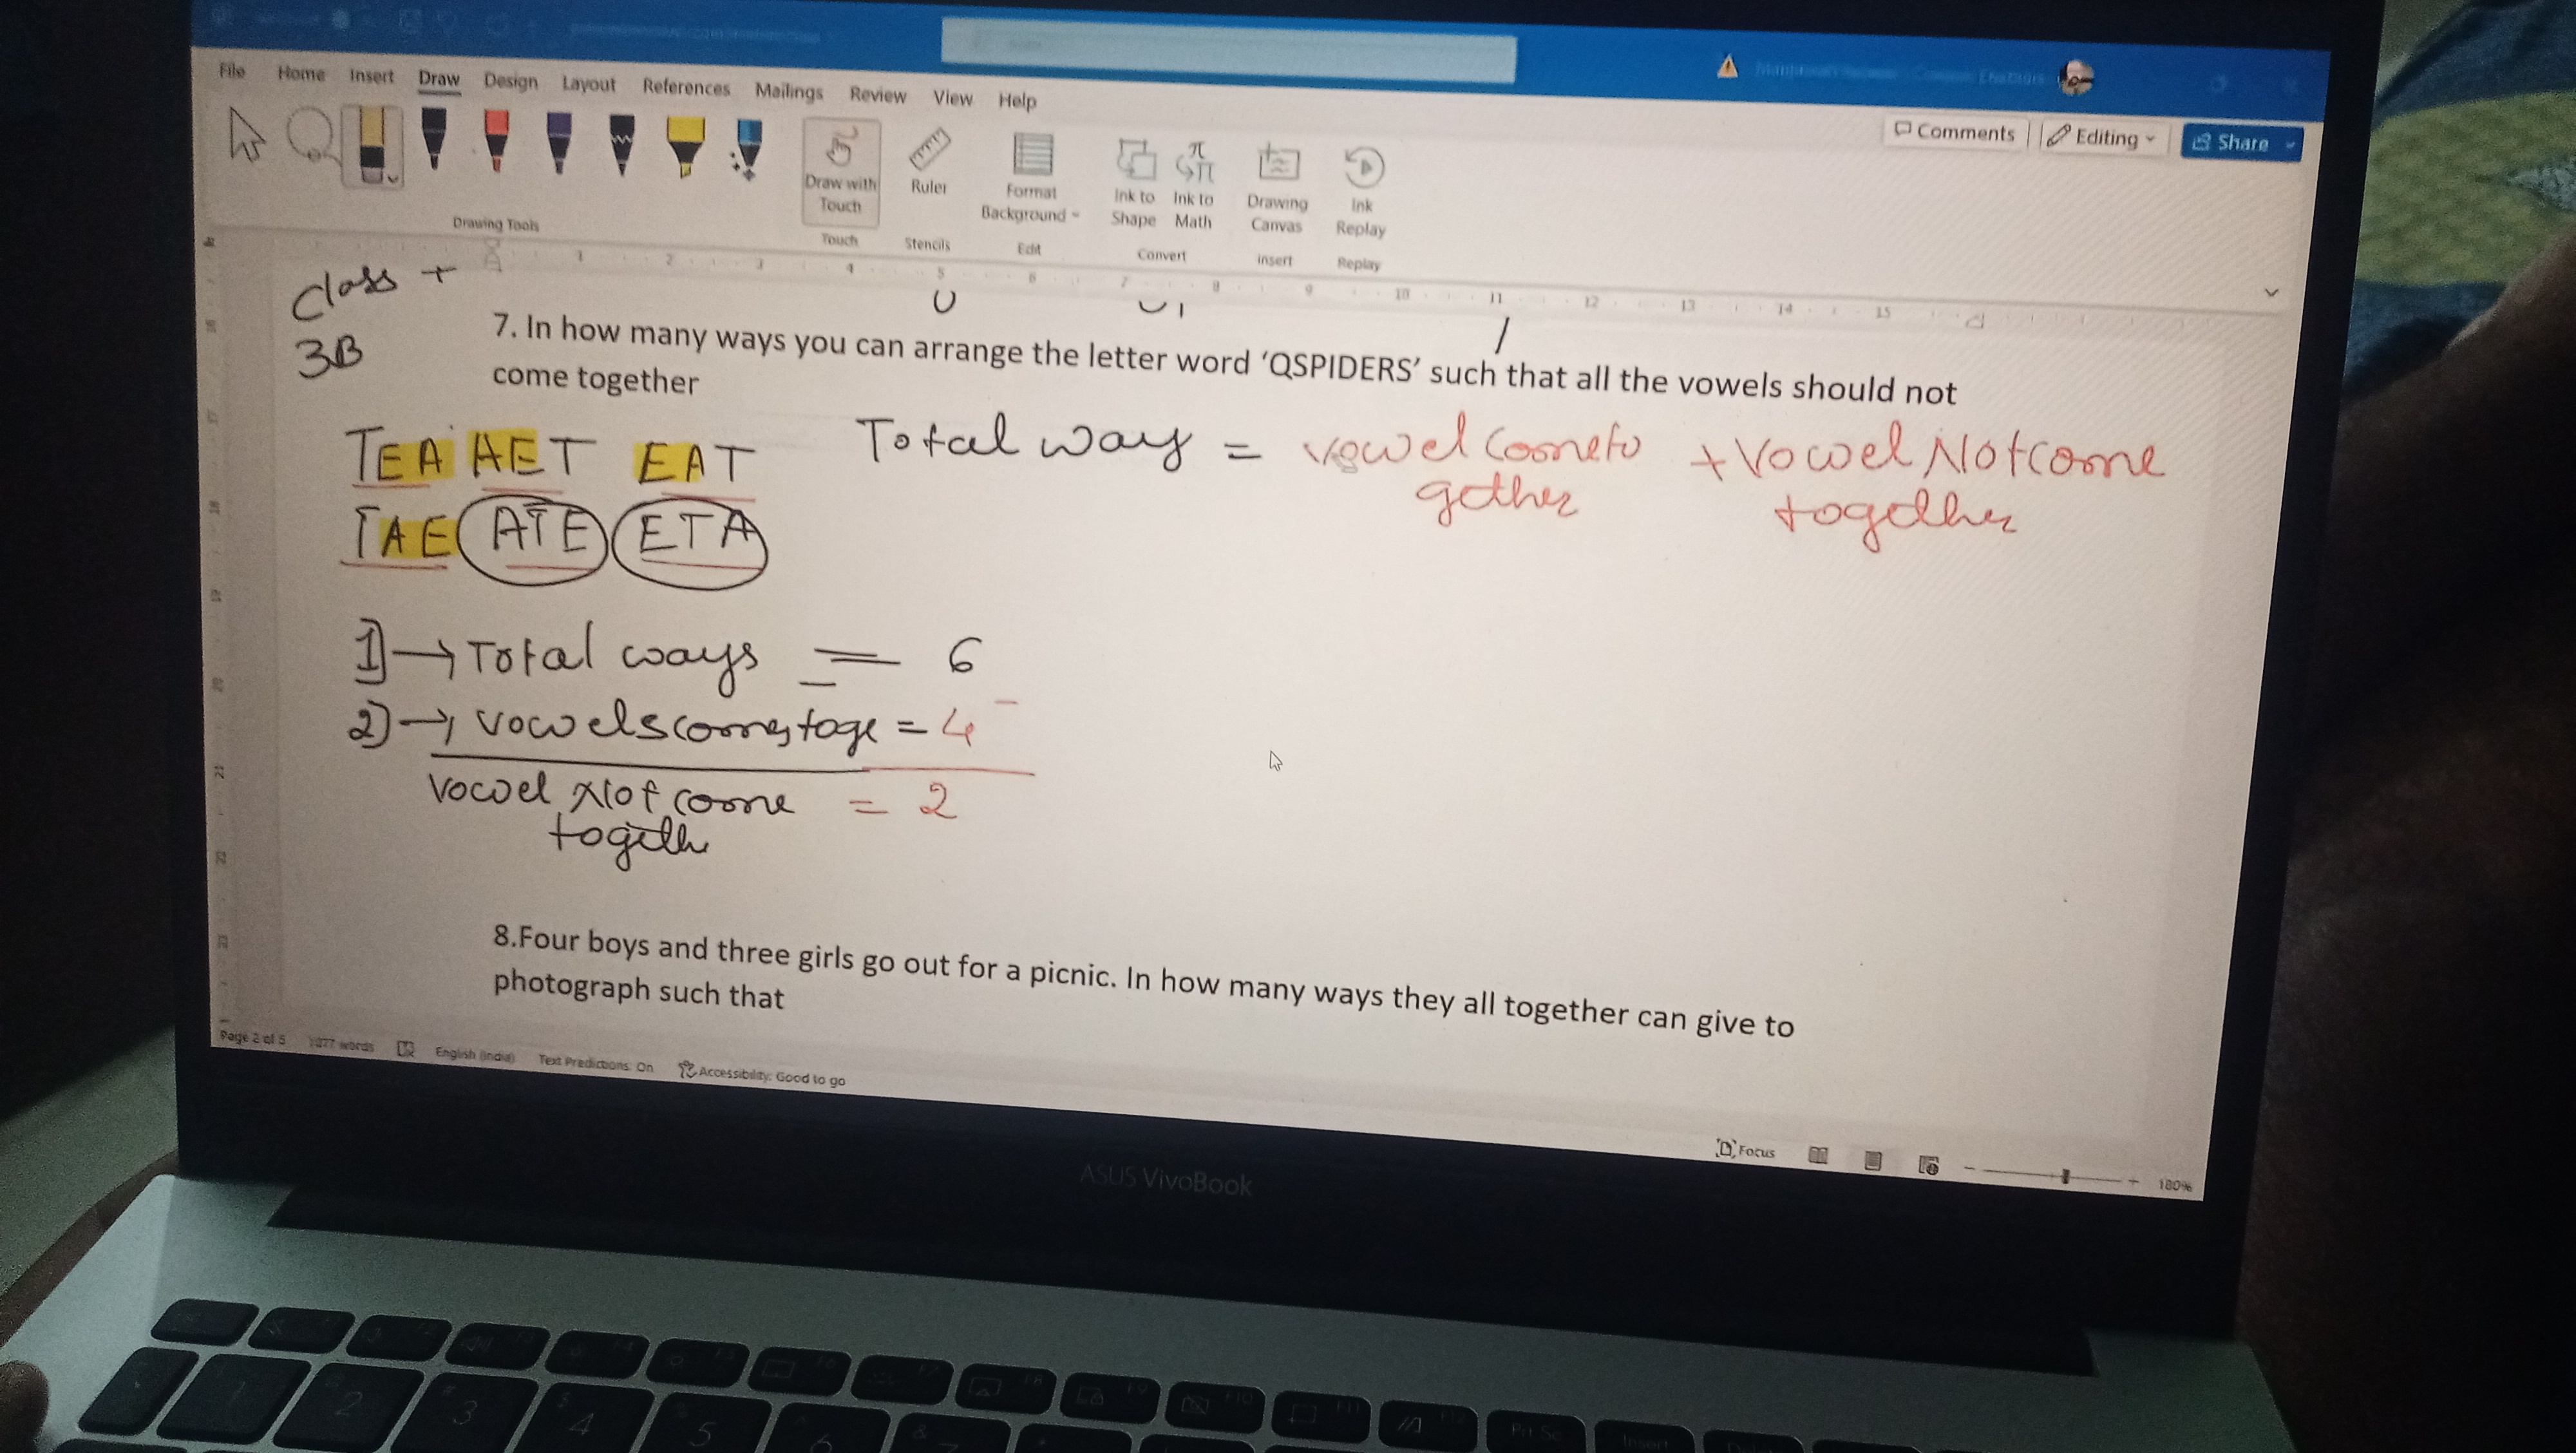 File Home Insert Draw Design Layout References Mailings Review View Help
Comments Editing Share
Draw with Touch
Ruler
Format Background
Ink to Shape
Ink to Math
Drawing Canvas
Ink Replay
Drawing Tools Touch Stencils Edit Convert Insert Replay
Class +
3B
7. In how many ways you can arrange the letter word ‘QSPIDERS’ such that all the vowels should not
come together
TEA AET EAT Total way = vowel Come to + Vowel Not come
gether together
TAE ATE ETA
1) → Total ways = 6
2) → vowels comes toge = 4
vowel Not come = 2
togethe
8.Four boys and three girls go out for a picnic. In how many ways they all together can give to
photograph such that
Page 2 of 5 1077 words English (India) Text Predictions: On Accessibility: Good to go Focus 180%
ASUS VivoBook